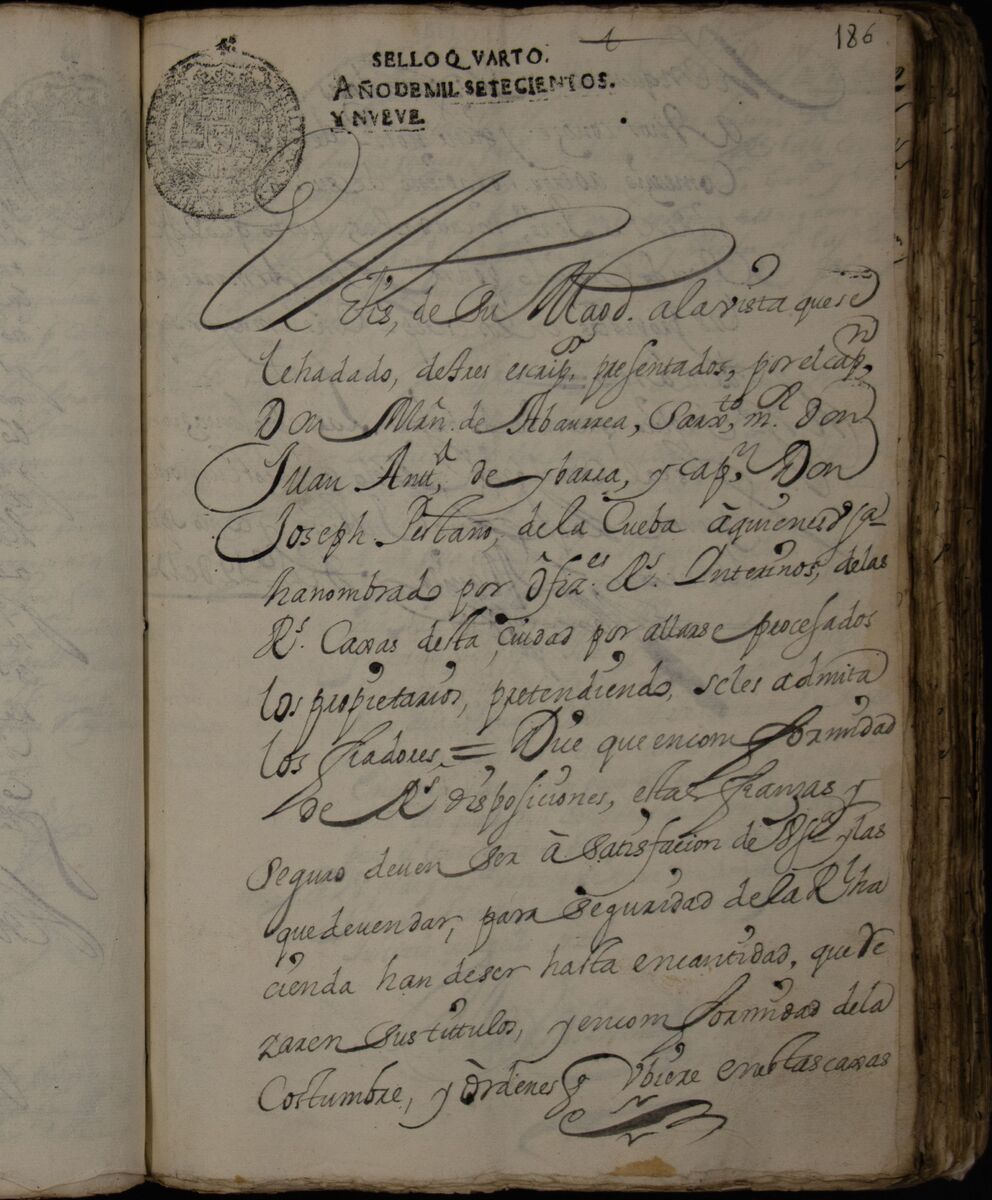 186
SELLO QVARTO.
AÑO DE MIL SETECIENTOS.
Y NVEVE.
El fis, de Su Magd. ala vista que se
lehadado, detres escripos. presentados, por el capn.
Don Mărn. de Abaurrea, Sarxto. mr. Don
Juan Antto. de ybarra, y capn. Don
Joseph Pestaño, dela Cueba àquienes Vsa.
hanombrado por òfizes. Rs. Interinos, delas
Rs. Caxas desta Ciudad por allarse procesados
los propietarios, pretendiendo, seles admita
los fiadores, = Dize que encom formidad
de Rs. disposiciones, estas fianzas y
seguro deuen ser à satisfacion de Vsa. y las
quedeuendar, para seguridad dela Rl. ha
cienda han deser hasta encantidad, que Re
zaren sus titulos, yencom formidad dela
Costumbre, y òrdenes q Vbiere enestas caxas